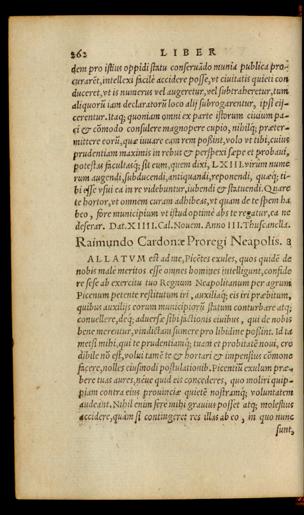 262 LIBER
dem pro istius oppidi statu conseruãdo munia publica pro-
curarẽt, intellexi facilè accidere posse, vt ciuitatis quieti con
duceret, vt is numerus vel augeretur, vel subtraheretur, tum
aliquorũ iam declaratorũ loco alij subrogarentur, ipsi eij-
cerentur. Itaq; quoniam omni ex parte istorum ciuium pa-
ci & cõmodo consulere magnopere cupio, nihilq; præter-
mittere eorũ, quæ iuuare eam rem possint, volo vt tibi, cuius
prudentiam maximis in rebus & perspexi sæpe et probaui,
potestas facultasq; sit eum, quem dixi, LXIII. virûm nume
rum augendi, subducendi, antiquandi, reponendi, quæq; ti-
bi esse vsui ea in re videbuntur, iubendi & statuendi. Quare
te hortor, vt omnem curam adhibeas, vt quam de te spem ha
beo, fore municipium vt istud optimè abs te regatur, ea ne
deserar. Dat. XIIII. Cal. Nouem. Anno III. Thuscanella.
Raimundo Cardonæ Proregi Neapolis. 3
ALLATVM est ad me, Picẽtes exules, quos quidẽ de
nobis male meritos esse omnes homines intelligunt, conside
re sese ab exercitu tuo Regnum Neapolitanum per agrum
Picenum petente restitutum iri, auxiliaq; eis iri præbitum,
quibus auxilijs eorum municipiorũ statum conturbare atq;
conuellere, deq; aduersæ sibi factionis ciuibus, qui de nobis
bene merentur, vindictam sumere pro libidine possint. Id ta
metsi mihi, qui te prudentiamq; tuam et probitatẽ noui, cre
dibile nõ est, volui tamẽ te & hortari & impensius cõmone
facere, nolles eiusmodi postulationib. Picentiũ exulum præ-
bere tuas aures, néue quid eis concederes, quo moliri quip-
piam contra eius prouinciæ quietẽ nostramq; voluntatem
audeant. Nihil enim ferè mihi grauius posset atq; molestius
accidere, quàm si contingeret res illas ab eo, in quo nunc
sunt,